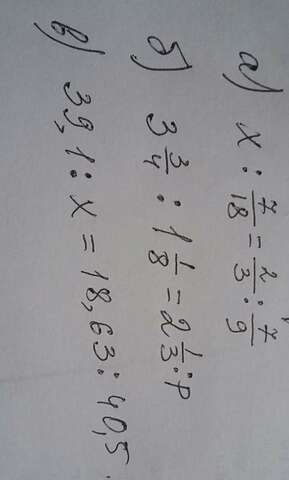 а) x : 7/18 = 2/3 : 7/9
б) 3 3/4 : 1 1/8 = 2 1/3 : p
в) 39,1 : x = 18,63 : 40,5.